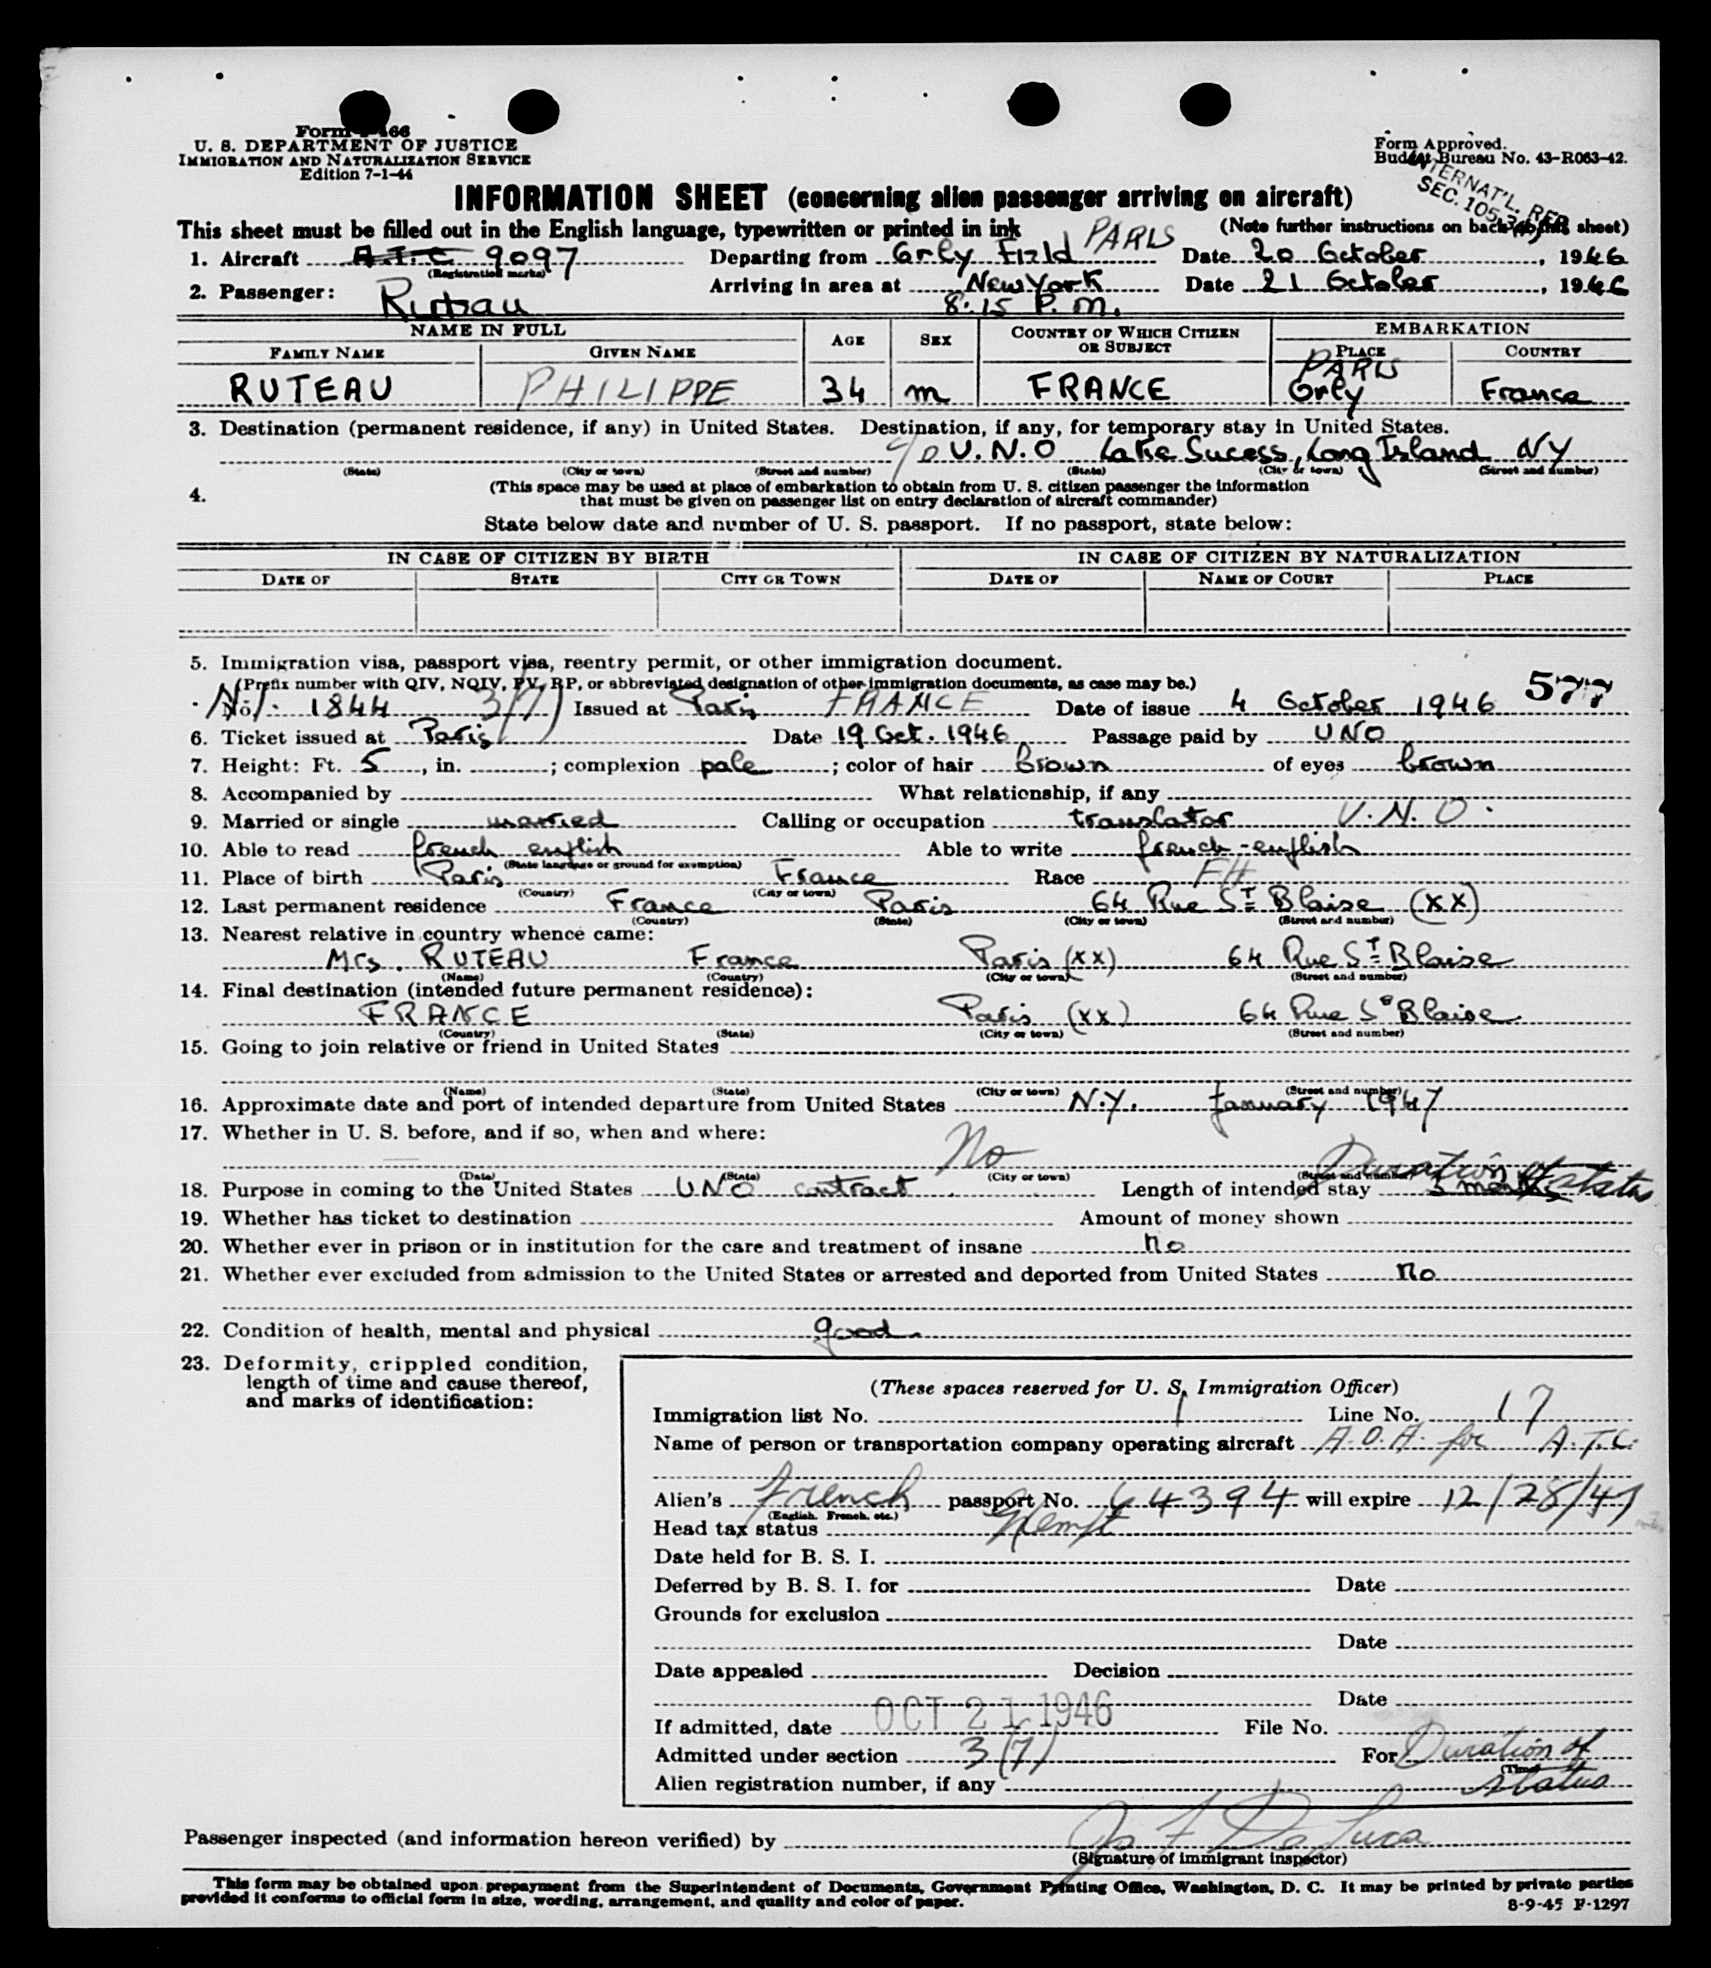 Form I-466
U. S. DEPARTMENT OF JUSTICE
IMMIGRATION AND NATURALIZATION SERVICE
Edition 7-1-44
Form Approved.
Budget Bureau No. 43-R063-42.
INTERNAT'L. REP.
SEC. 105.3
INFORMATION SHEET (concerning alien passenger arriving on aircraft)
This sheet must be filled out in the English language, typewritten or printed in ink (Note further instructions on back of this sheet)
PARIS
1. Aircraft A.T.C 9097 Departing from Orly Field Date 20 October, 1946
(Registration marks)
2. Passenger: Ruteau Arriving in area at New York Date 21 October, 1946
8:15 P.M.
NAME IN FULL AGE SEX COUNTRY OF WHICH CITIZEN OR SUBJECT EMBARKATION
FAMILY NAME GIVEN NAME PLACE COUNTRY
PARIS
RUTEAU PHILIPPE 34 m FRANCE Orly France
3. Destination (permanent residence, if any) in United States. Destination, if any, for temporary stay in United States.
c/o U.N.O Lake Sucess, Long Island NY
(State) (City or town) (Street and number) (State) (City or town) (Street and number)
4. (This space may be used at place of embarkation to obtain from U. S. citizen passenger the information
that must be given on passenger list on entry declaration of aircraft commander)
State below date and number of U. S. passport. If no passport, state below:
IN CASE OF CITIZEN BY BIRTH IN CASE OF CITIZEN BY NATURALIZATION
DATE OF STATE CITY OR TOWN DATE OF NAME OF COURT PLACE
5. Immigration visa, passport visa, reentry permit, or other immigration document.
(Prefix number with QIV, NQIV, PV, RP, or abbreviated designation of other immigration documents, as case may be.)
577
No. 1844 3(7) Issued at Paris FRANCE Date of issue 4 October 1946
6. Ticket issued at Paris Date 19 Oct. 1946 Passage paid by UNO
7. Height: Ft. 5, in. ; complexion pale ; color of hair brown of eyes brown
8. Accompanied by What relationship, if any
9. Married or single married Calling or occupation translator U.N.O.
10. Able to read french english Able to write french-english
(State language or ground for exemption)
11. Place of birth Paris France Race FH
(Country) (City or town)
12. Last permanent residence France Paris 64 Rue St Blaise (XX)
(Country) (State) (City or town) (Street and number)
13. Nearest relative in country whence came:
Mrs. RUTEAU France Paris (XX) 64 Rue St Blaise
(Name) (Country) (City or town) (Street and number)
14. Final destination (intended future permanent residence):
FRANCE Paris (XX) 64 Rue St Blaise
(Country) (State) (City or town) (Street and number)
15. Going to join relative or friend in United States
(Name) (State) (City or town) (Street and number)
16. Approximate date and port of intended departure from United States N.Y. January 1947
17. Whether in U. S. before, and if so, when and where:
No
(Date) (State) (City or town) (Street and number)
Duration of status
18. Purpose in coming to the United States UNO contract Length of intended stay 3 months
19. Whether has ticket to destination Amount of money shown
20. Whether ever in prison or in institution for the care and treatment of insane no
21. Whether ever excluded from admission to the United States or arrested and deported from United States no
22. Condition of health, mental and physical good.
23. Deformity, crippled condition,
length of time and cause thereof,
and marks of identification:
(These spaces reserved for U. S. Immigration Officer)
Immigration list No. 1 Line No. 17
Name of person or transportation company operating aircraft A.O.A. for A.T.C.
Alien's French passport No. 64394 will expire 12/28/47
(English, French, etc.)
Head tax status Exempt
Date held for B. S. I.
Deferred by B. S. I. for Date
Grounds for exclusion
Date
Date appealed Decision
Date
If admitted, date OCT 21 1946 File No.
Admitted under section 3(7) For Duration of
(Time)
Alien registration number, if any status
Passenger inspected (and information hereon verified) by Jos F De Luca
(Signature of immigrant inspector)
This form may be obtained upon prepayment from the Superintendent of Documents, Government Printing Office, Washington, D. C. It may be printed by private parties
provided it conforms to official form in size, wording, arrangement, and quality and color of paper.
8-9-45 F-1297